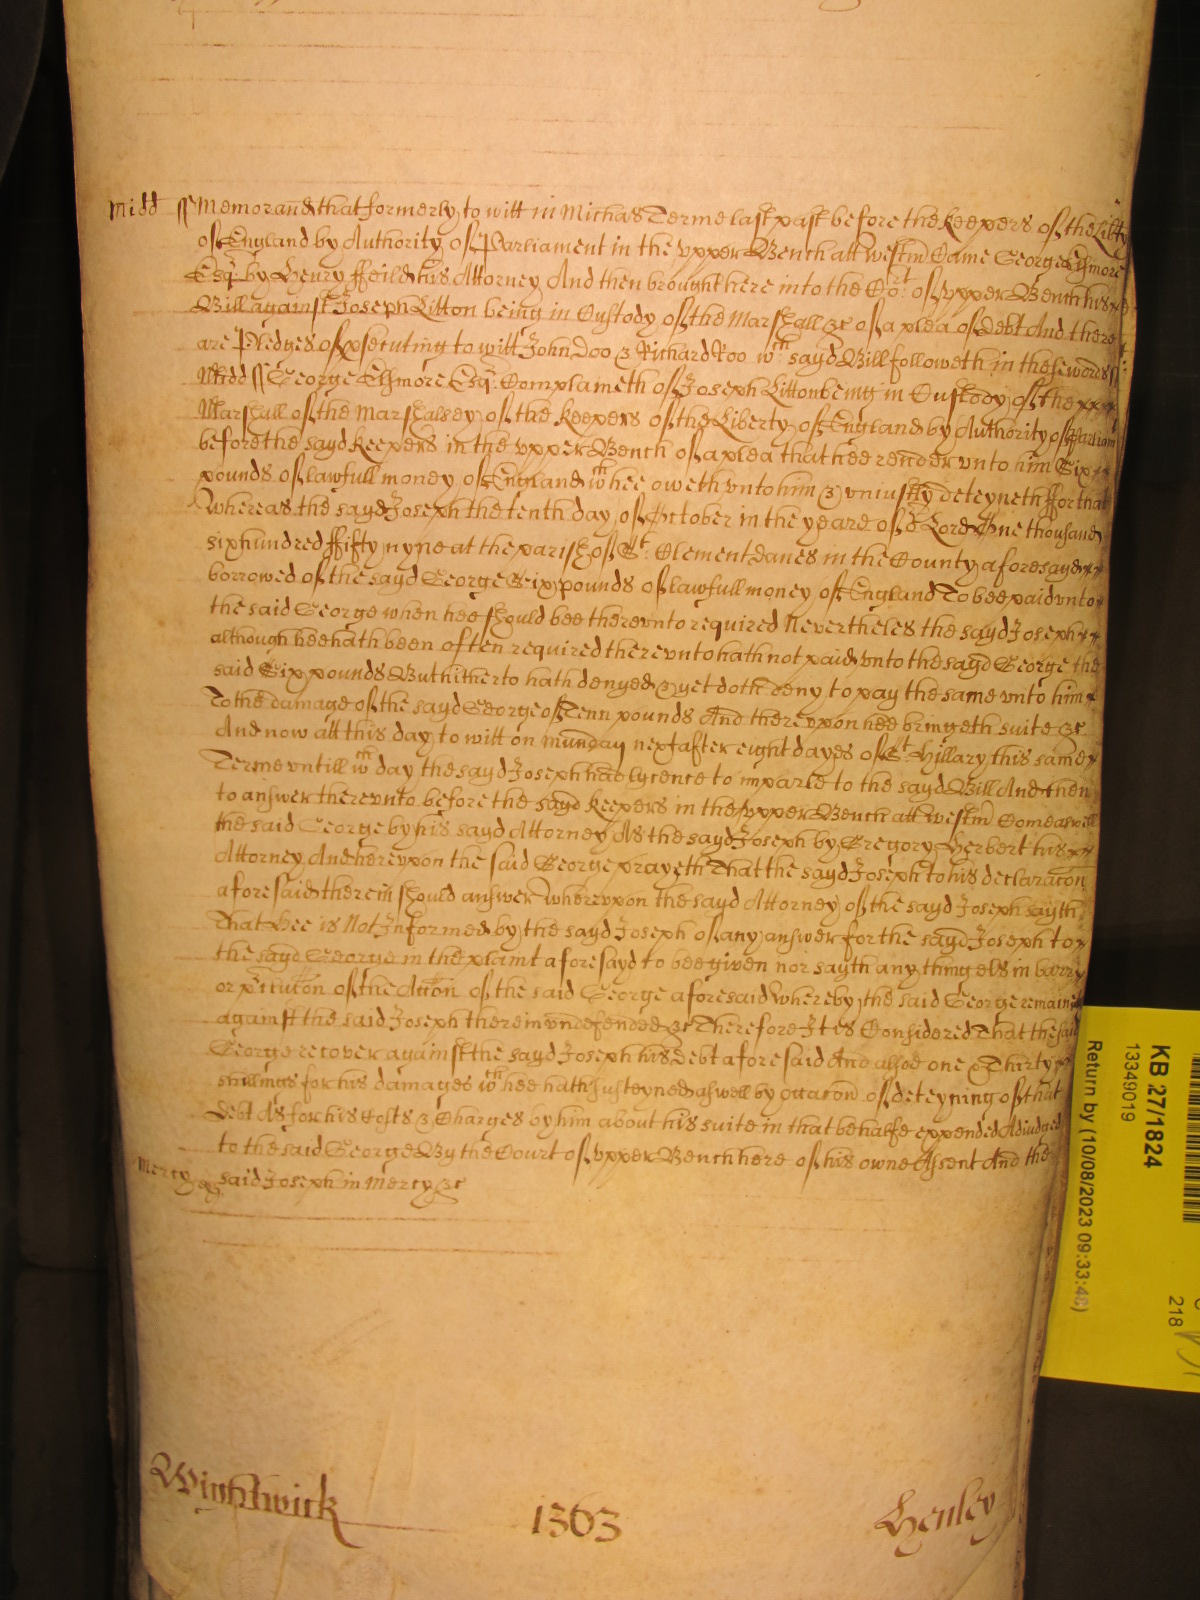 Midd ss Memorand that formerly to witt in Michas Terme last past before the Keepers of the Libty
of England by Authority of Parliament in the vpper Bench att westm Came George Elsmore
Esqr by Henry ffeild his Attorney And then brought here into the Cort of vpper Bench his
Bill against Joseph Litton being in Custody of the Marshall &c of a plea of debt And there
are Pledges of psecuting to witt John Doo & Richard Roo wch sayd Bill followeth in these words ss
Midd ss George Elsmore Esqr Complaineth of Joseph Litton being in Custody of the
Marshall of the Marshalsey of the Keepers of the Liberty of England by Authority of Parliam
before the sayd Keepers in the vpper Bench of a plea that hee render vnto him Six
pounds of lawfull money of England wch hee oweth vnto him & vniustly deteyneth ffor that
whereas the sayd Joseph the tenth day of October in the yeare of or Lord One thousand
six hundred ffifty nyne at the parish of St Clement Danes in the County aforesayd
borrowed of the sayd George Six pounds of lawfull money of England To bee paid vnto
the said George when hee should bee therevnto required Nevertheles the sayd Joseph
although hee hath been often required therevnto hath not paid vnto the sayd George the
said Six pounds But hitherto hath denyed & yet doth deny to pay the same vnto him
To the damage of the sayd George of Tenn pounds And therevpon hee bringeth suite &c
And now att this day to witt on munday next after eight dayes of St Hillary this same
Terme vntill wch day the sayd Joseph had lycence to imparle to the sayd Bill And then
to answer therevnto before the sayd Keepers in the vpper Bench att westm Come aswell
the said George by his sayd Attorney As the sayd Joseph by Gregory Herbert his
Attorney And herevpon the said George prayeth That the sayd Joseph to his declaracon
aforesaid therein should answer wherevpon the sayd Attorney of the sayd Joseph sayth
That Hee is Not Informed by the sayd Joseph of any answer for the sayd Joseph to
the sayd George in the plaint aforesayd to bee given nor sayth any thing els in barr
or of the Accon of the said George aforesaid whereby the said George remaines
against the said Joseph therein vndefended &c Therefore It is Considered That the said
George recover against the sayd Joseph his debt aforesaid And alsoe one & Thirty
shillings for his damages wch hee hath susteyned aswell by occacon of deteyning of that
debt As for his Costs & Charges by him about his suite in that behalfe expended Adiudged
to the said George By the Court of vpper Bench here of his owne Assent And the
Mercy said Joseph in Mercy &c
Wightwick 1363 Henley
KB 27/1824
13349019
Return by (10/08/2023 09:33:48)
218